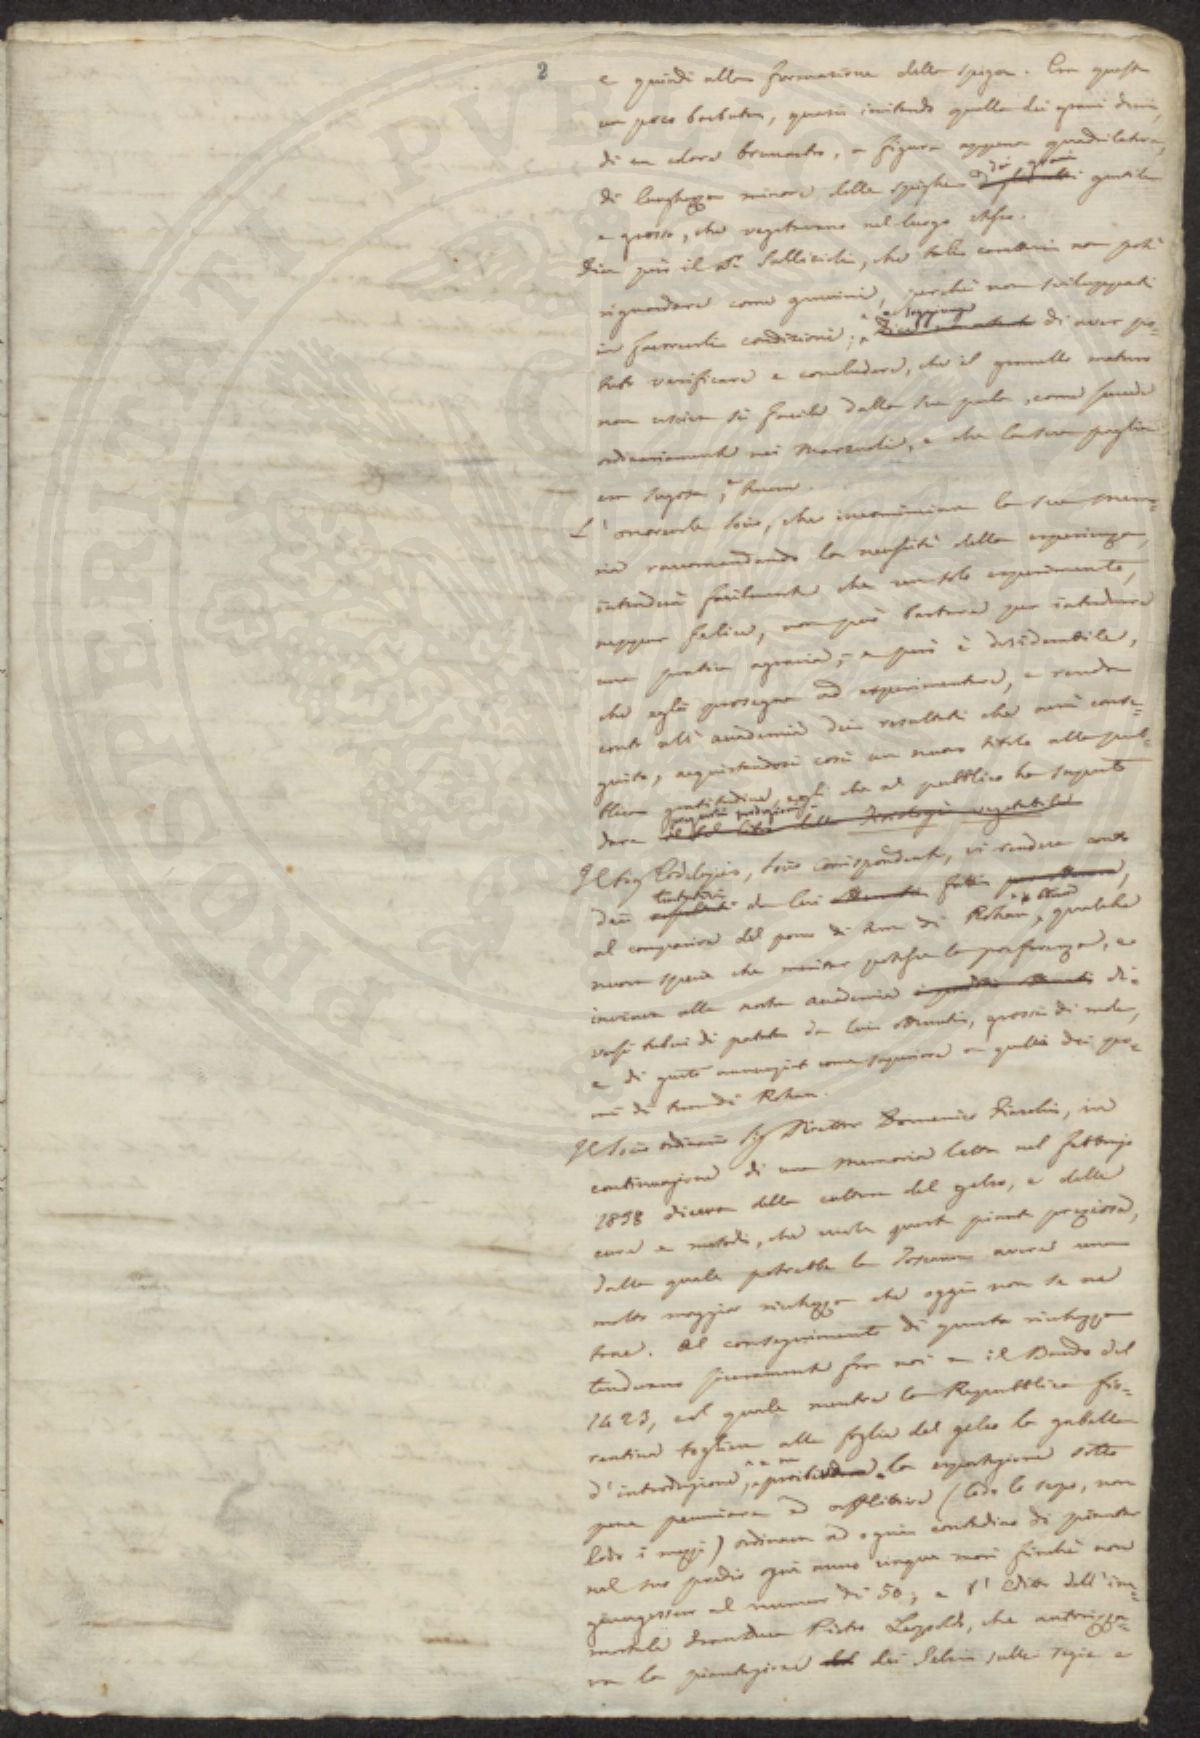 2
e quindi alla formazione della spiga. Era questa
un poco barbata, quasi imitando quella dei grani duri,
di un colore brunastro, a figura appena quadrilatera,
di lunghezza minore delle spighe dei grani gentile
e grosso, che vegetavano nel luogo stesso.
Dice però il Sr. che tali caratteri non potè
riguardare come genuini, perchè non sviluppati
in favorevoli condizioni; e soggiunge di aver po-
tuto verificare e concludere, che il granello maturo
non usciva sì facile dalla sua pula, come succede
ordinariamente nei Marzuoli, e che la sua paglia
era
L'onorevole Socio, che incominciava la sua memo-
ria raccomandando la necessità della esperienza,
intenderà facilmente che un solo esperimento,
neppur felice, non può bastare per introdurre
una pratica agraria; e però è desiderabile,
che egli prosegua ad esperimentare, e renda
conto all'accademia dei resultati che avrà conse-
guito, acquistandosi così un nuovo titolo alla pub-
blica gratitudine, egli che al pubblico ha saputo
dare Fisiologia vegetabile
Il Sig Socio corrispondente, vi rendeva conto
dei tentativi da lui fatti
al comparire del pomo di terra di Rohan, qualche
nuova specie che meritar potesse la preferenza, e
inviava alla nostra accademia di-
versi tuberi di patate da lui ottenuti, grossi di mole,
e di gusto annunziato come superiore a quelli dei po-
mi di terra di Rohan.
Il Socio ordinario Sig Direttor Domenico in
continuazione di una memoria letta nel febbrajo
1838 diceva della cultura del gelso, e delle
cure e metodi, che vuole questa pianta preziosa,
dalla quale potrebbe la Toscana avere una
molto maggior ricchezza che oggi non se ne
trae. Al conseguimento di questa ricchezza
tendevano fra noi e il Bando del
1423, col quale mentre la Repubblica fio-
rentina toglieva alla foglia del gelso la gabella
d'introduzione, e ne proibiva la esportazione sotto
pena pecuniaria ed afflittiva (lodo lo scopo, non
lodo i mezzi) ordinava ad ogni contadino di piantar
nel suo podio ogni anno cinque mori finchè non
giungesser al numero di 50; e l'Editto dell'im-
mortale Granduca Pietro Leopoldo, che autorizza-
va la piantagione del dei Gelsi sulle regie e